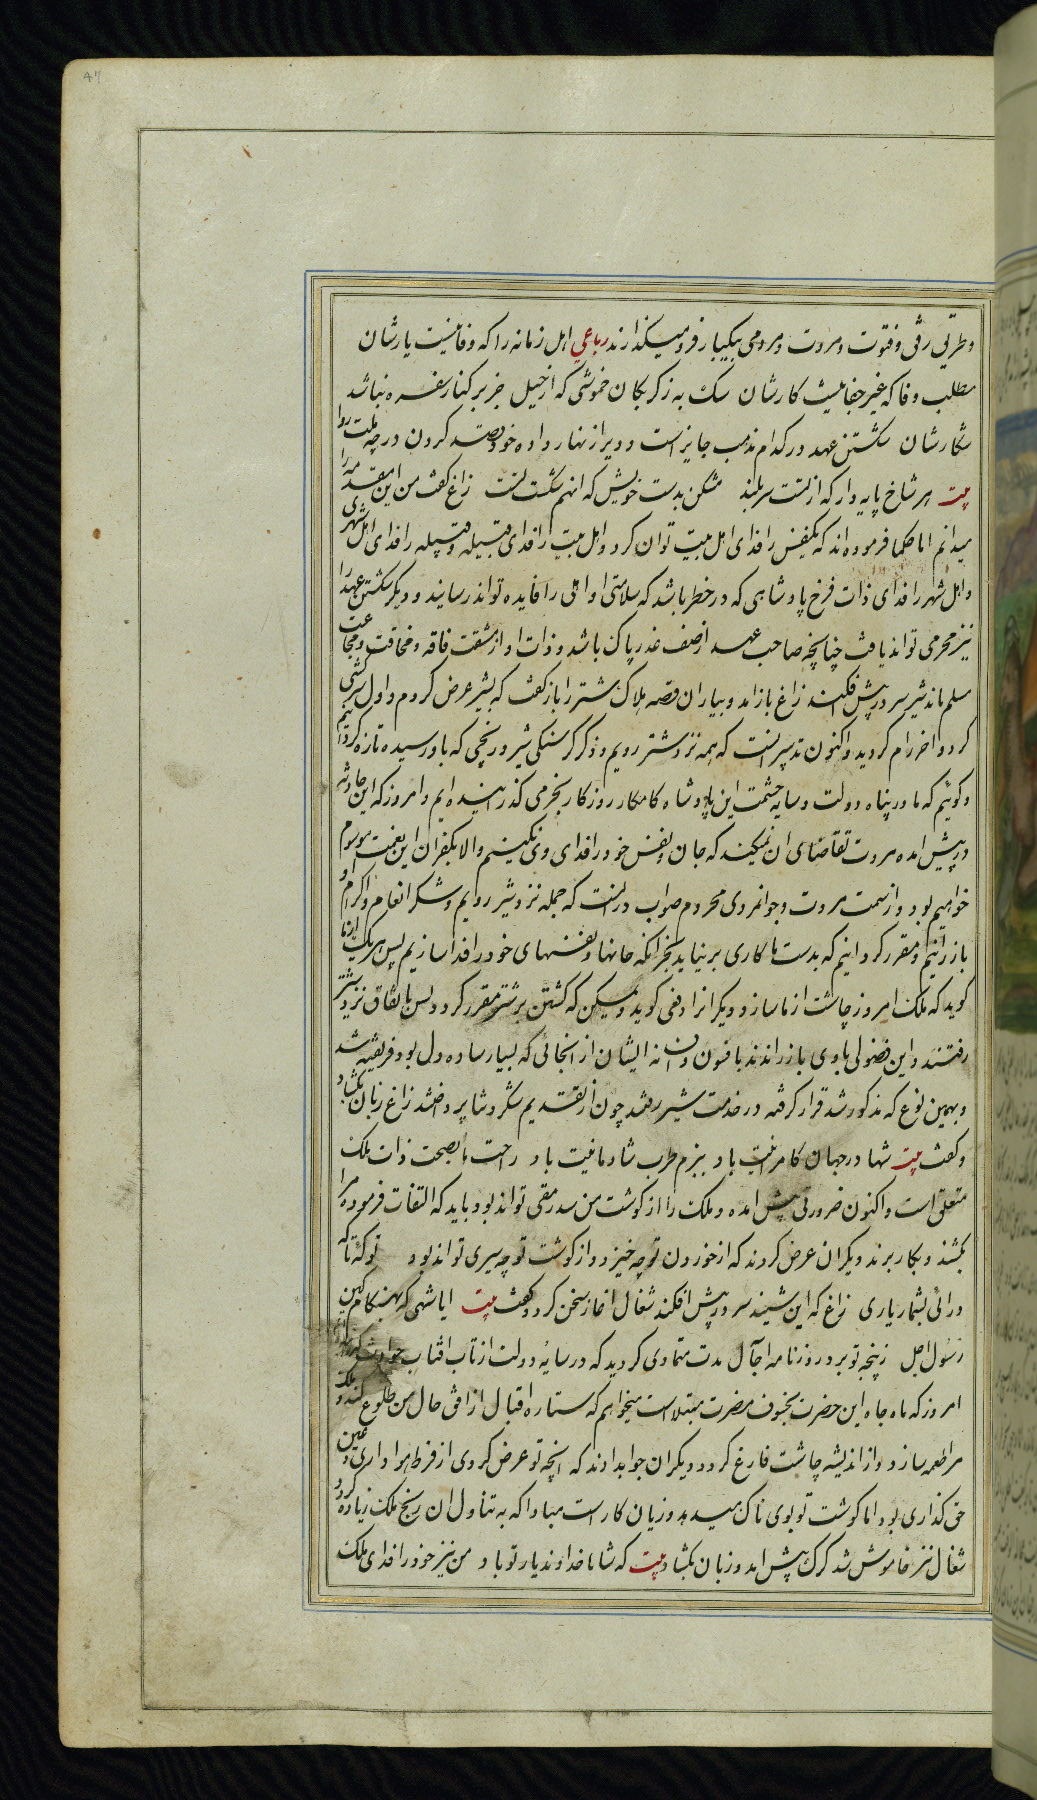 وطریق رفق و فتوت و مروت و مردمی بیکبار فرو میکذارند رباعی اهل زمانه را که وفا نیست یارشان
مطلب وفا که غیر جفا نیست کارشان سک به ز کربکان خموشی که از حیل جز بر کنار سفره نباشد
شکارشان شکستن عهد در کدام مذهب جایز است و دیر از نهار داده خود قصد کردن در چه ملت روا
بیت هر شاخ پایه دار که از تست سربلند مشکن بدست خویش که انهم شکست تست زاغ کفت من این مقدمه را
میدانم اما حکما فرموده اند که یکنفس را فدای اهل بیت توان کرد و اهل بیت را فدای قبیله و قبیله را فدای اهل شهری
و اهل شهر را فدای ذات فرخ پادشاهی که در خطر باشد که سلامتی او اقلیمی را فایده تواند رسانید و دیکر شکستن عهد را
نیز مخرجی تواند یافت چنانچه صاحب عهد از صف غدر پاک باشد و ذات او از مشقت فاقه و مخافت و مجاعت
مسلم ماند شیر سر در پیش افکند زاغ باز امد و بیاران قصه هلاک شتر را باز کفت که بشیر عرض کردم و اول سرکشی
کرد و اخر رام کردید و اکنون تدبیر انست که همه نزد شتر رویم و ذکر کرسنکی شیر و رنجی که باو رسیده تازه کردانیم
و کوئیم که ما در پناه دولت و سایه حشمت این پادشاه کامکار روزکار بخرمی کذرانیده ایم و امروز که این حادثه
در پیش امده مروت تقاضای ان نمیکند که جان و نفس خود را فدای وی نکنیم و الا بکفران این نعمت موسوم
خواهیم بود و از سمت مروت و جوانمردی محروم صواب در انست که جمله نزد شیر رویم و شکر انعام و اکرام او
باز رانیم و مقرر کردانیم که بدست ما کاری برنیاید بجز انکه جانها و نفسهای خود را فدا سازیم پس هر یک از ما
کوید که ملک امروز چاشت از ما سازد و دیکر انرا دفعی کوید و ممکن که کشتن بر شتر مقرر کردد پس باتفاق نزد شتر
رفتند و این فضولی باوی باز راندند بافسون و افسانه ایشان از انجائی که بسیار ساده دل بود فریفته شد
و بهمین نوع که مذکور شد قرار کرفته در خدمت شیر رفتند چون از تقدیم شکر و ثنا پرداختند زاغ زبان بکشاد
و کفت بیت شها در جهان کامرانیت باد ببزم طرب شادمانیت باد راحت ما بصحت ذات ملک
متعلق است و اکنون ضرورتی پیش امده و ملک را از کوشت من سد رمقی تواند بود باید که التفات فرموده مرا
بکشند و بکار برند دیکران عرض کردند که از خوردن تو چه خیزد و از کوشت تو چه سیری تواند بود تو که تا که
درائی بشمار یاری زاغ که این شنید سر در پیش افکند شغال اغاز سخن کرد و کفت بیت ایا شهی که بهنکام کین
رسول اجل ز پنجه تو برد روزنامه اجآل مدت متمادی کردید که در سایه دولت از تاب افتاب حوادث
امروز که ماه جاه این حضرت بخسوف مضرت مبتلاست میخواهم که ستاره اقبال از افق حال من طلوع کند و ملک
مرا طعمه سازد و از اندیشه چاشت فارغ کردد دیکران جواب دادند که انچه تو عرض کردی از فرط هواداری و عین
حق کذاری بود اما کوشت تو بوی ناک میدهد و زیان کار است مبادا که به تناول ان رنج ملک زیاده کردد
شغال نیز خاموش شد کرک پیش امد و زبان بکشاد بیت که شاها خداوند یار تو باد من نیز خود را فدای ملک